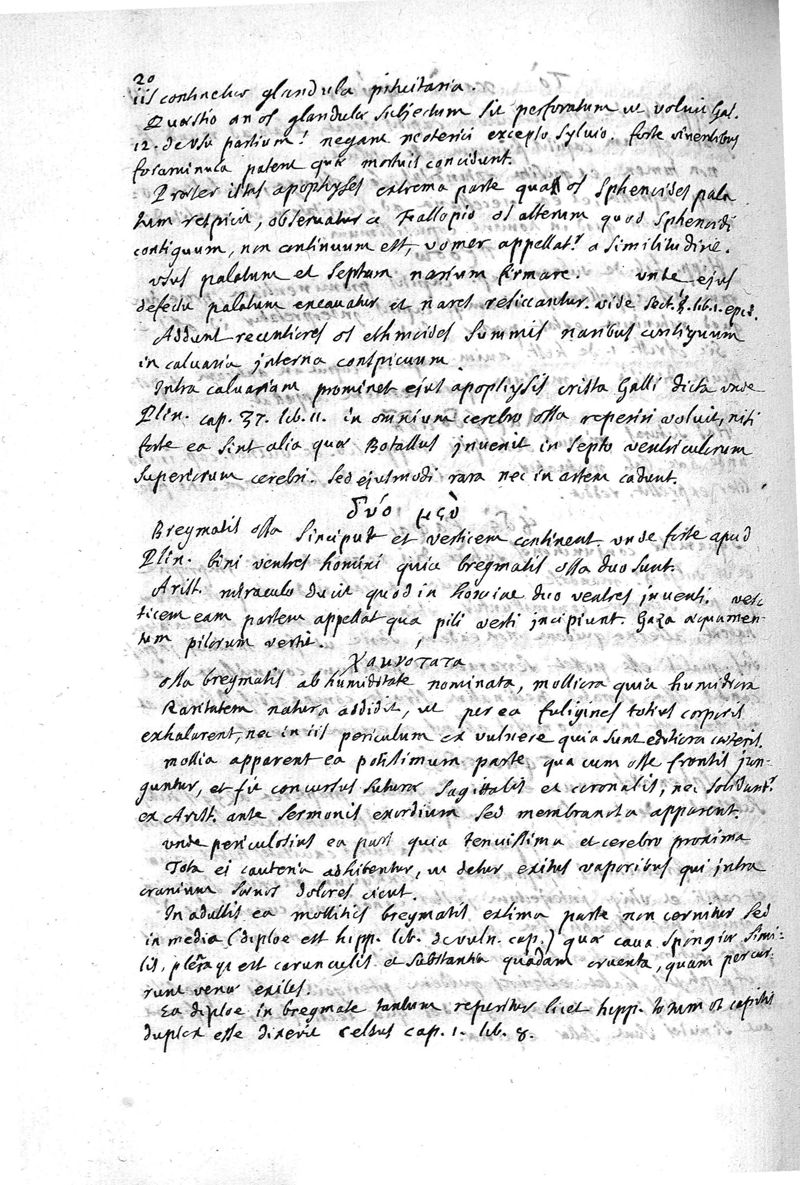 20
iis continetur glandula pituitaria.
Quæstio an os glandulæ subjectum sit perforatum ut voluit Gal.
12. de usu partium! negant neoterici excepto Sylvio. forte viventibus
foraminula patent quæ mortuis concidunt.
Præter istas apophyses extrema parte qua os sphenoides pala
tum respicit, observatur a Fallopio os alterum quod sphenoidi
contiguum, non continuum est, vomer appellat.r a similitudine.
usus palatum et septum narium firmare. unde ejus
defectu palatum excavatur et nares resiccantur. vide sect. lib. 1. epid.
Addunt recentiores os ethmoides summis naribus contiguum
in calvaria interna conspicuum
Intra calvariam prominet ejus apophysis crista Galli dicta unde
Plin. cap. 37. lib. 11. in omnium cerebro ossa reperiri voluit, nisi
forte ea sint alia quæ Botallus invenit in septo ventriculorum
superiorum cerebri. sed ejusmodi rara nec in artem cadunt.
δύο μὲν
Bregmatis ossa sinciput et verticem continent unde forte apud
Plin. bini ventres homini quia bregmatis ossa duo sunt.
Arist. miraculo ducit quod in homine duo ventres inventi. ver
ticem eam partem appellat qua pili verti incipiunt. Gaza
tum pilorum vertit.
χαυνότατα
ossa bregmatis ab humiditate nominata, molliora quia humidiora
Raritatem natura addidit, ut per ea fuligines totius corporis
exhalarent, nec in iis periculum ex vulnere quia sunt editiora cæteris.
mollia apparent ea potissimum parte, qua cum osse frontis jun-
guntur, et fit concursus suturæ sagittalis et coronalis, nec solidant.r
ex Arist. ante sermonis exordium sed membranosa apparent.
unde periculosius ea pars quia tenuissima et cerebro proxima
Tota ei cauteria adhibentur, ut detur exitus vaporibus qui intra
cranium sævos dolores cient.
In adultis ea mollities bregmatis extima parte non cernitur sed
in media (diploe est hipp. lib. de vuln. cap.) quæ cava spongiæ simi-
lis, plena est carunculis et substantia quadam cruenta, quam percur-
runt venæ exiles.
Ea diploe in bregmate tantum reperitur licet hipp. totum os capitis
duplex esse dixerit Celsus cap. 1. lib. 8.